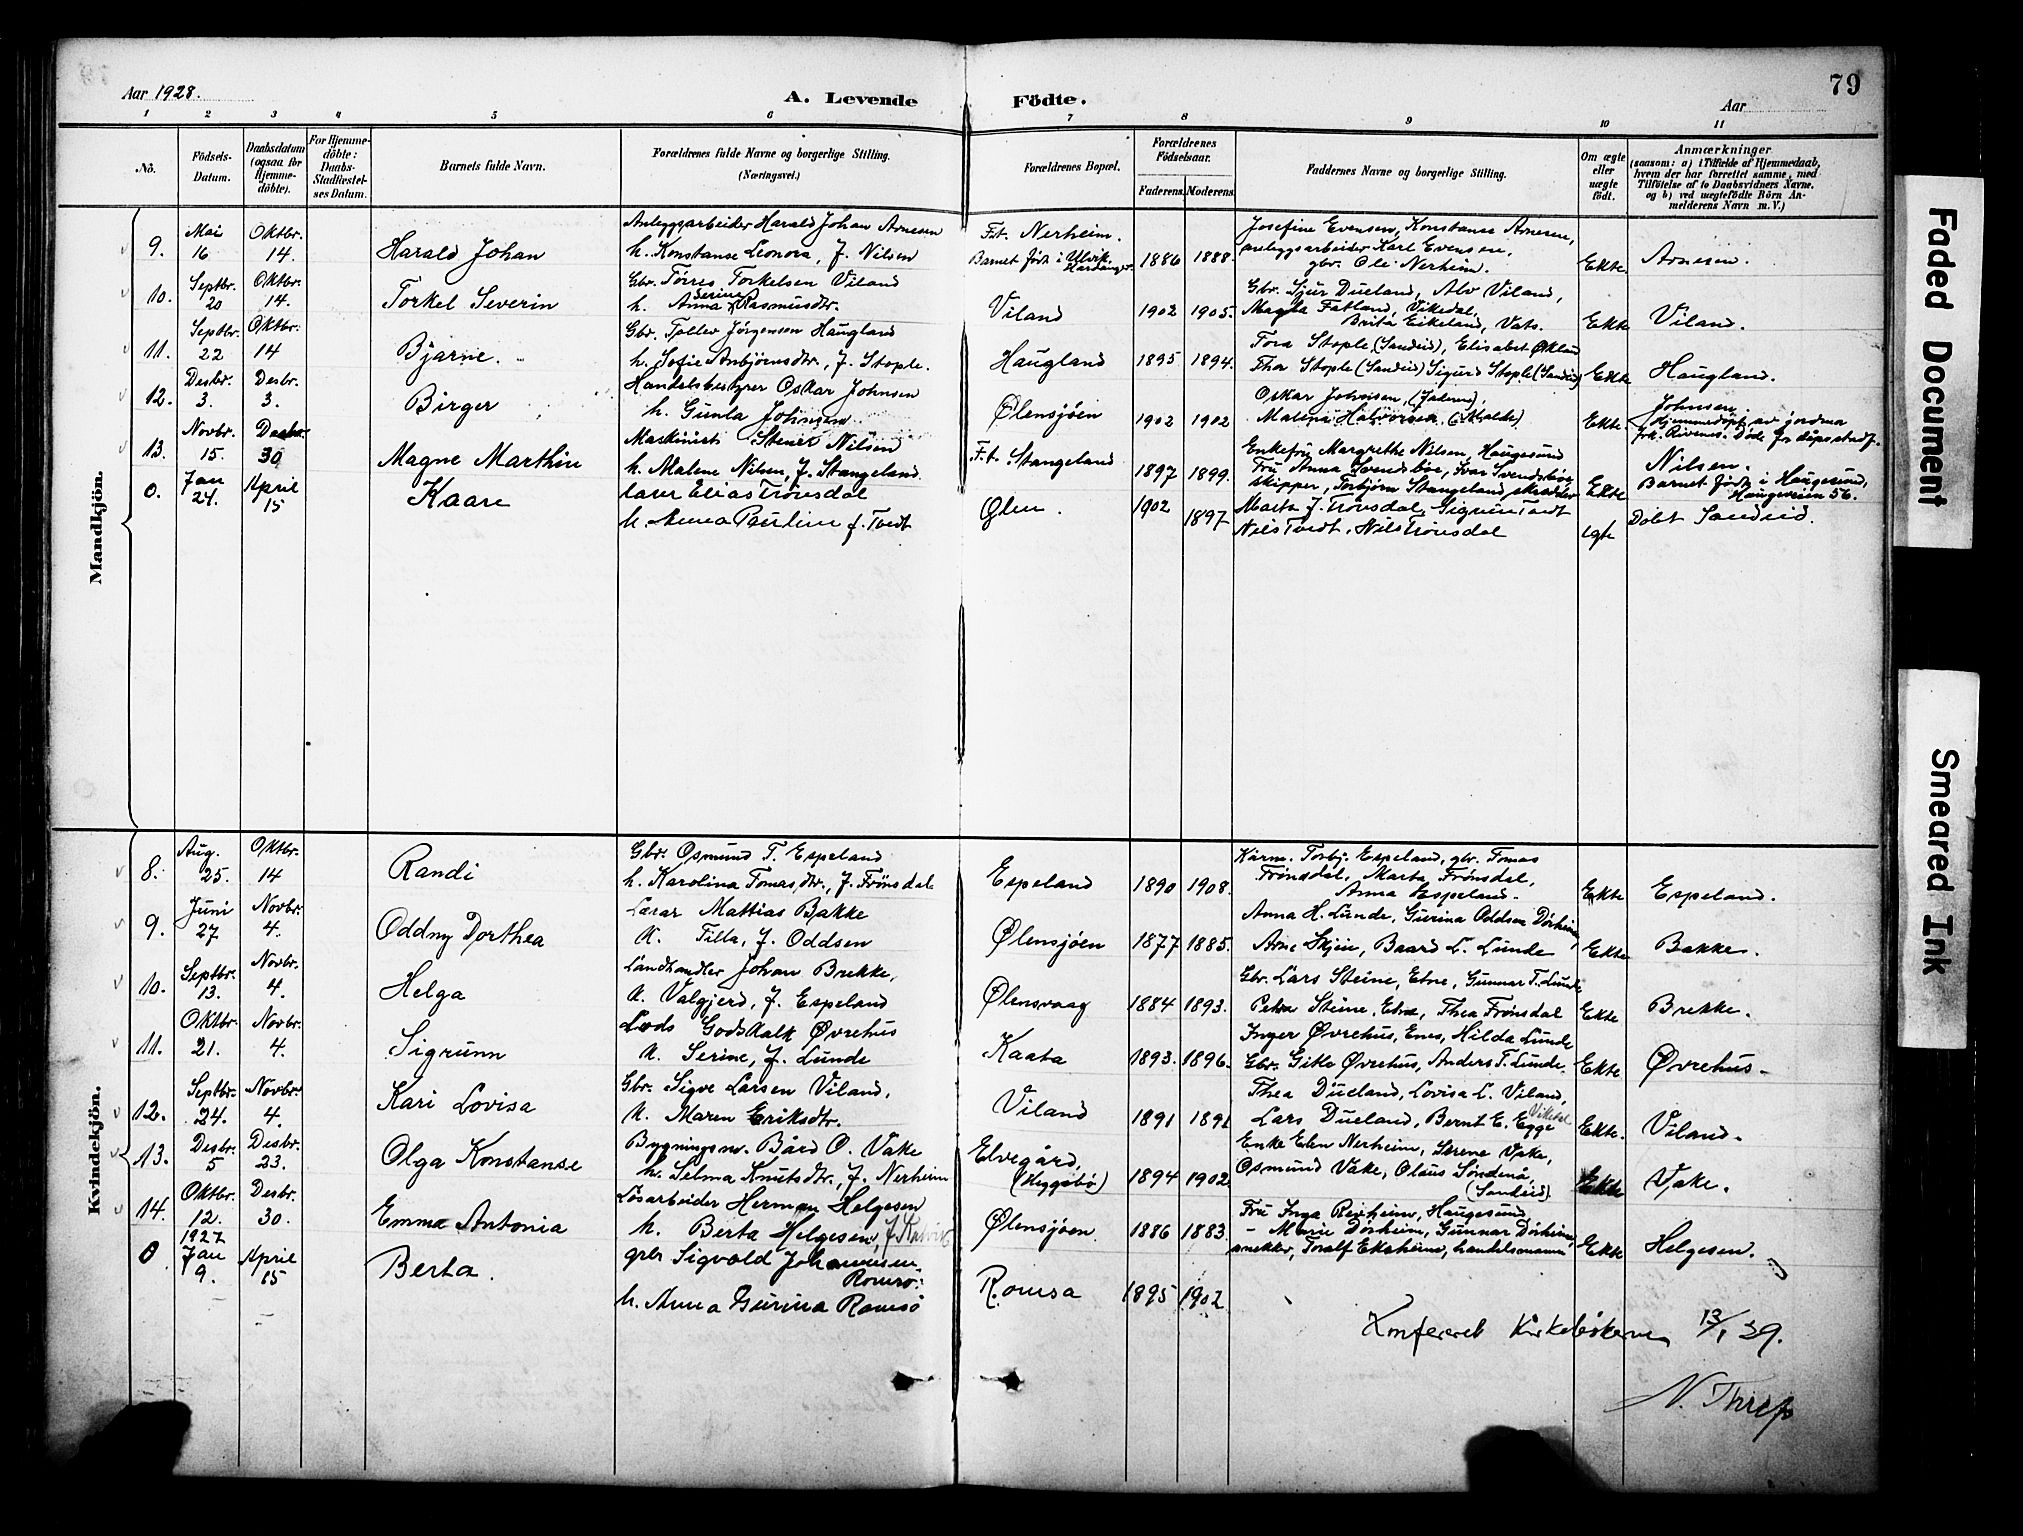 79
Aar 1928.
A. Levende Födte.
Aar
1 2 3 4 5 6 7 8 9 10 11
No.
Födsels-Datum.
Daabsdatum (ogsaa for Hjemme-döbte).
For Hjemme-döbte: Daabs-Stadfæstel-ses Datum.
Barnets fulde Navn.
Forældrenes fulde Navne og borgerlige Stilling. (Næringsvei.)
Forældrenes Bopæl.
Forældrenes Födselsaar.
Faderens. Moderens.
Faddernes Navne og borgerlige Stilling.
Om ægte eller uægte födt.
Anmærkninger
(saasom: a) i Tilfælde af Hjemmedaab, hvem der har forrettet samme, med Tilföielse af to Daabsvidners Navne, og b) ved uægtefödte Börn An-melderens Navn m. V.)
Mandkjön.
9. Mai 16 Oktbr. 14.
Harald Johan
Anleggsarbeider Harald Johan Arnesen
h. Konstanse Leonora, f. Nilsen
Fst. Nerheim.
Barnet født i Ulvik, Hardanger.
1886 1888.
Josefine Evensen, Konstanse Arnesen,
anleggsarbeider Karl Evensen,
gbr. Ole Nerheim.
Ekte
Arnesen.
10. Septbr. 20 Oktbr. 14.
Torkel Severin
Gbr. Tørres Torkelsen Viland
h. Anna Serina Rasmusdtr.
Viland
1902 1905.
Gbr. Sjur Dueland, Alv Viland,
Magla Fatland, Vikedal,
Brita Eikeland, Vats.
Ekte
Viland.
11. Septbr. 22 Oktbr. 14
Bjarne.
Gbr. Tollev Jørgensen Haugland
h. Sofie Anbjørnsdtr., f. Stople.
Haugland
1895 1894.
Tora Stople (Sandeid), Elisabet Økland
Thor Stople (Sandeid) Sigurd Stople (Sandeid)
Ekte
Haugland.
12. Desbr. 3. Desbr. 3.
Birger
Handelsbestyrer Oskar Johnsen
h. Gunla Johnsen
Ølensjøen
1902 1902
Oskar Johnsen,
Malene Halvorsen
Ekte
Johnsen.
Hjemmedøpt av jordmor
frk. Rivenes. Døde før dåpsstadf.
13. Novbr. 15. Desbr. 30
Magne Marthin
Maskinist Steiner Nilsen
h. Malene Nilsen, f. Stangeland
F.t. Stangeland
1897 1899.
Enkefru Margrethe Nilsen, Haugesund
Fru Anna Svendsbøe, Ivar Svendsbøe
skipper, Torbjørn Stangeland, skredder
Ekte
Nilsen.
Barnet født i Haugesund,
Haugeveien 56.
0. Jan 24. April 15
Kaare
lærer Elias Trønsdal
h. Anna Pauline f. Tvedt
Ølen.
1902 1897
Marta f. Trønsdal, Sigrun Tvedt
Nils Tvedt, Nils Trønsdal
egte
Døbt Sandeid.
Kvindekjön.
8. Aug. 25. Oktbr. 14
Randi
Gbr. Osmund T. Espeland
h. Karolina Tomasdtr., f. Frønsdal
Espeland
1890 1908.
Torbj. Espeland, gbr. Tomas
Frønsdal, Marta Frønsdal,
Anna Espeland.
Ekte
Espeland.
9. Juni 27 Novbr. 4.
Oddny Dorthea
Lærar Mattias Bakke
K. Tilla, f. Oddsen
Ølensjøen
1877 1885.
Anna H. Lunde, Gurina Oddsen Dørheim,
Arne Skjeie, Baard L. Lunde
Ekte
Bakke.
10. Septbr. 13. Novbr. 4.
Helga
Landhandler Johan Brekke,
K. Valgjerd, f. Espeland
Ølensvaag
1884 1893.
Gbr. Lars Steine, Etne, Gunnar T. Lunde
Petra Steine, Etne, Thea Frønsdal
Ekte
Brekke.
11. Oktbr. 21. Novbr. 4.
Sigrunn
Lods Godskalk Øvrehus
K. Serine, f. Lunde
Kaata
1893. 1896.
Inger Øvrehus, Enes, Hilda Lunde
Gbr. Gitle Øvrehus, Anders T. Lunde.
Ekte
Øvrehus-
12. Septbr. 24. Novbr. 4.
Kari Lovisa
Gbr. Sigve Larsen Viland,
K. Maren Eriksdtr.
Viland
1891 1891
Thea Dueland, Lovisa L. Viland,
Lars Dueland, Bernt E. Egge Vikedal
Ekte.
Viland.
13. Desbr. 5 Desbr. 23.
Olga Konstanse
Bygningsm. Bård O. Vake
h. Selma Knutsdtr., f. Nerheim
Elvegård,
(Heggebø)
1894 1902
Enke Elen Nerheim, Serene Vake,
Osmund Vake, Olaus Søndenå,
(Sandeid)
Ekte
Vake.
14. Oktbr. 12. Desbr. 30.
Emma Antonia
Løsarbeider Herman Helgesen
h. Berta Helgesen,
Ølensjøen
1886 1883
Fru Inga Reisheim, Haugesund
- Marie Dørheim, Gunnar Dørheim,
snekker, Toralf Eksheim, handelsmann
Ekte
Helgesen.
0 1927 Jan 9. April 15
Berta.
gbr Sigvald Johannesen
Romsø.
h. Anna Gurina Romsø
Romsa
1895 1902
Konfereret Kirkebøkerne 13/1 29.
N. Thiis
Faded Document
Smeared Ink